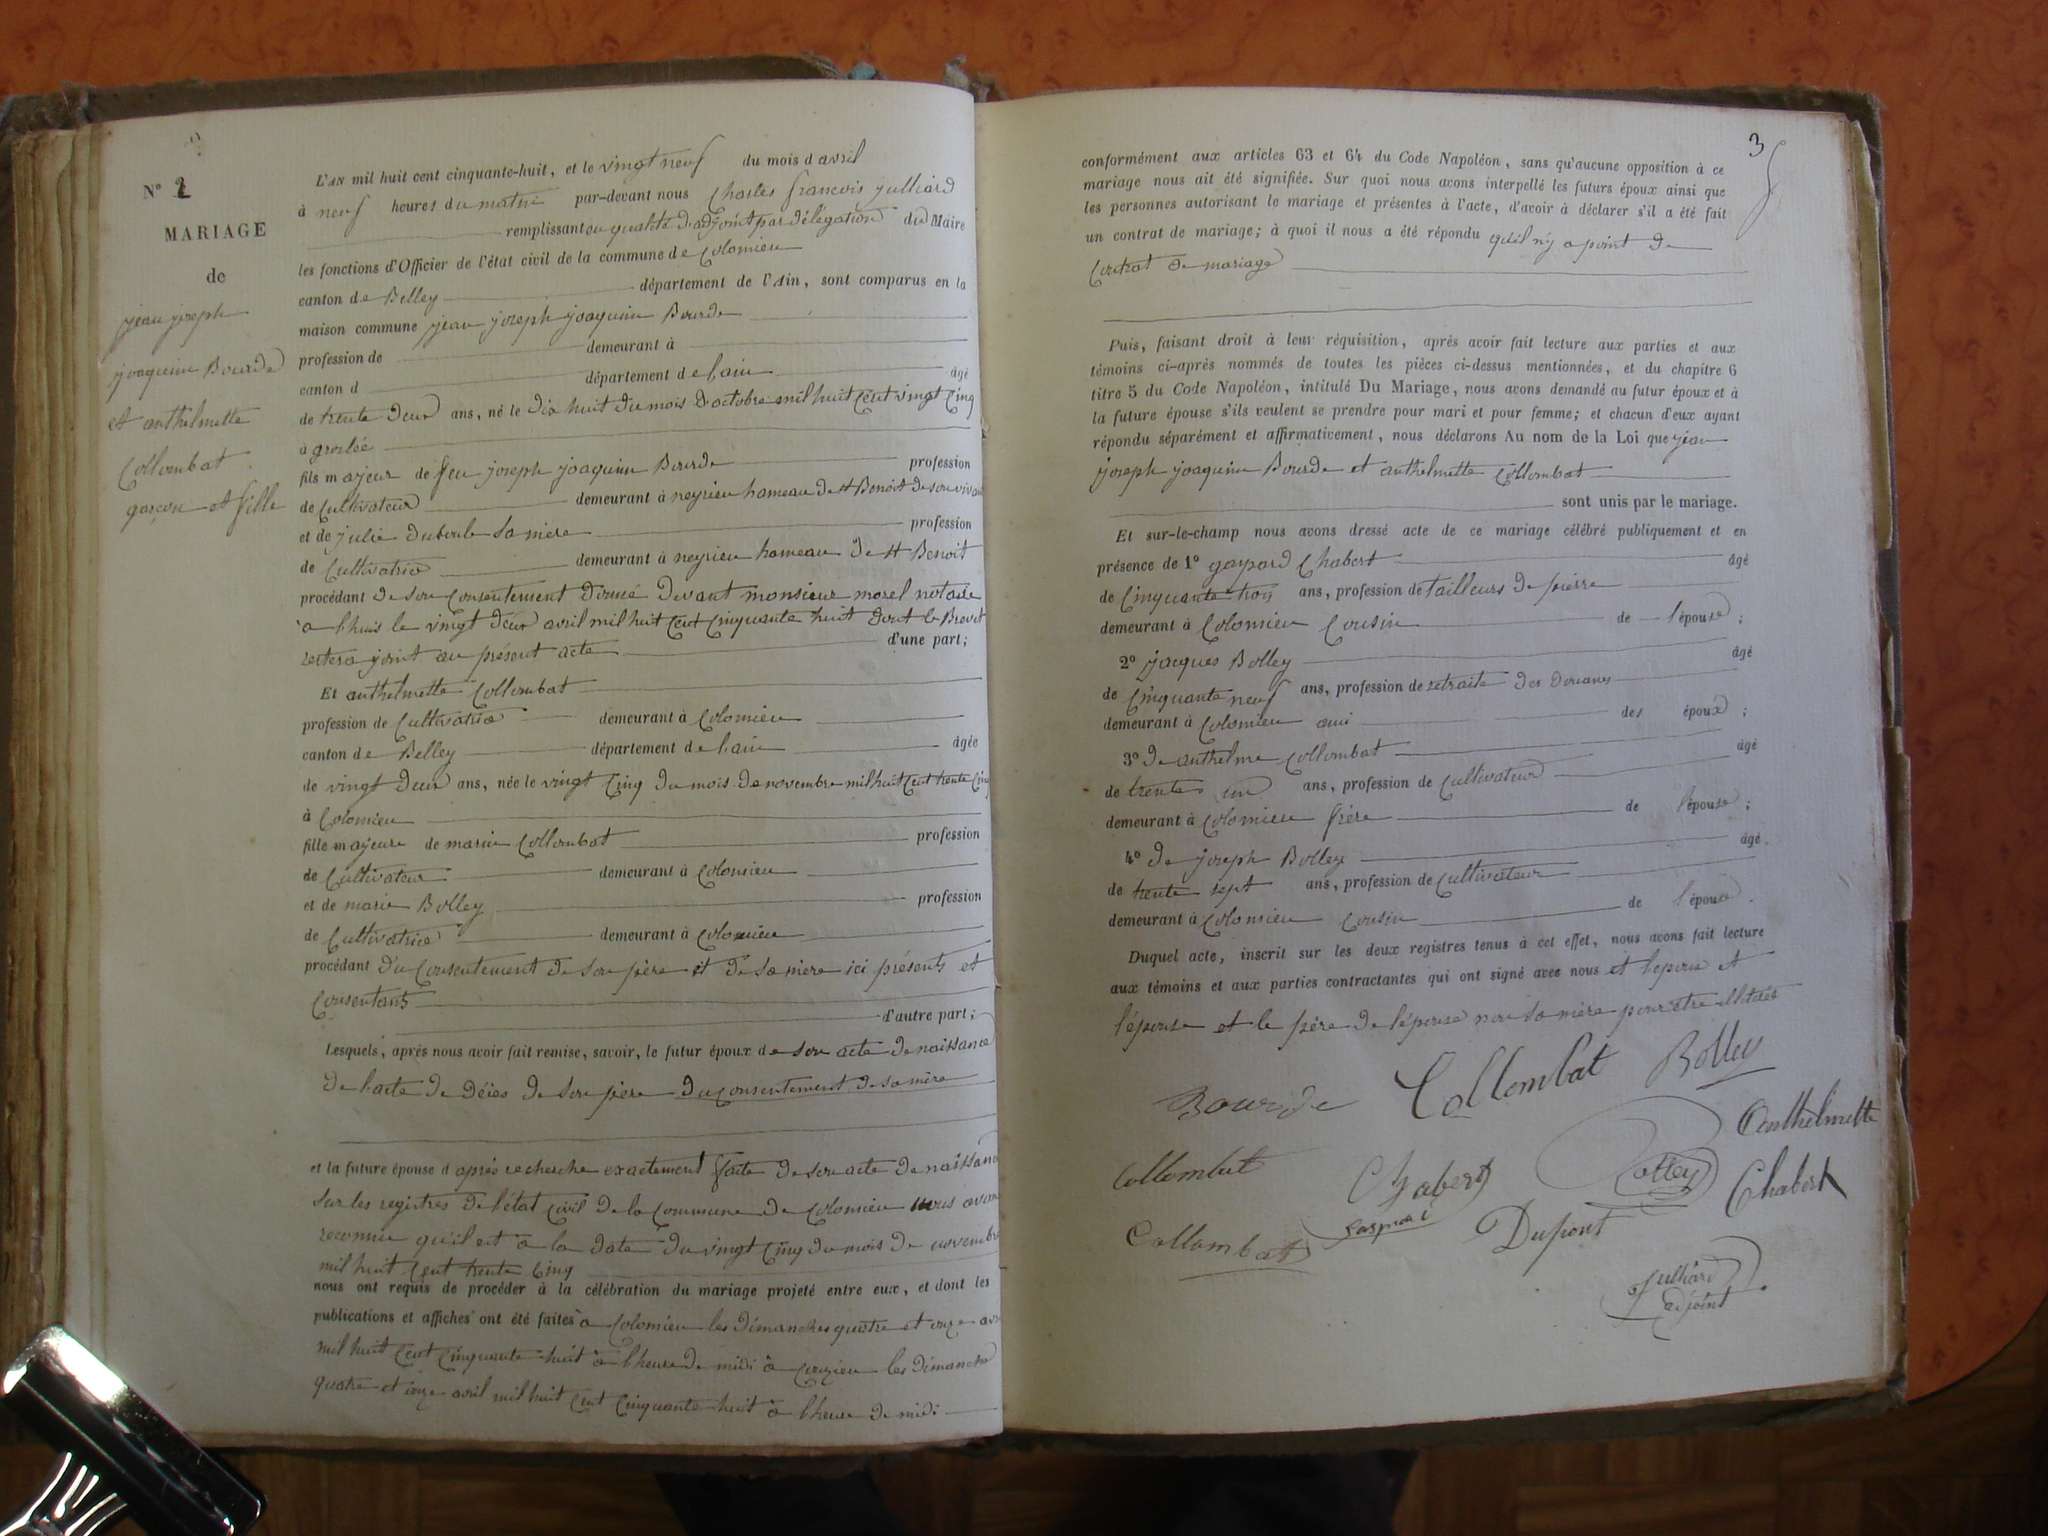 N° 2
MARIAGE
de
jean joseph
joaquim Bourde
et anthelmette
Collombat
garçon et fille
L'AN mil huit cent cinquante-huit, et le vingt neuf du mois d avril
à neuf heures du matin par-devant nous Charles françois julliard
remplissant en qualité d'adjoint par délégation du Maire
les fonctions d'Officier de l'état civil de la commune de Colomieu
canton de Belley département de l'Ain, sont comparus en la
maison commune jean joseph joaquim Bourde
profession de demeurant à
canton d département de l'ain âgé
de trente deux ans, né le dix huit du mois d'octobre mil huit Cent vingt Cinq
à groslée
fils majeur de feu joseph joaquim Bourde profession
de Cultivateur demeurant à neyrieu hameau de St Benoit de son vivant
et de julie sa mère profession
de Cultivatrice demeurant à neyrieu hameau de St Benoit
procédant de son Consentement donné Devant monsieur morel notaire
a lhuis le vingt deux avril mil huit Cent Cinquante huit dont le Brevet
restera joint au présent acte d'une part;
Et anthelmette Collombat
profession de Cultivatrice demeurant à Colomieu
canton de Belley département de l'ain âgée
de vingt deux ans, née le vingt Cinq du mois de novembre mil huit Cent trente Cinq
à Colomieu
fille majeure de marin Collombat profession
de Cultivateur demeurant à Colomieu
et de marie Bolley profession
de Cultivatrice demeurant à Colomieu
procédant du Consentement de son père et de sa mère ici présents et
Consentants
d'autre part;
Lesquels, après nous avoir fait remise, savoir, le futur époux de son acte de naissance
de l'acte de décès de son père du consentement de sa mère
et la future épouse d après recherche exactement faite de son acte de naissance
sur les registres de l'état Civil de la Commune de Colomieu nous avons
reconnu qu'il est à la date du vingt Cinq du mois de novembre
mil huit Cent trente Cinq
nous ont requis de procéder à la célébration du mariage projeté entre eux, et dont les
publications et affiches ont été faites à Colomieu les dimanches quatre et onze avril
mil huit Cent Cinquante huit à l'heure de midi à les dimanche
quatre et onze avril mil huit Cent Cinquante huit à l'heure de midi
3
conformément aux articles 63 et 64 du Code Napoléon, sans qu'aucune opposition à ce
mariage nous ait été signifiée. Sur quoi nous avons interpellé les futurs époux ainsi que
les personnes autorisant le mariage et présentes à l'acte, d'avoir à déclarer s'il a été fait
un contrat de mariage; à quoi il nous a été répondu qu'il n'y a point de
Contrat de mariage
Puis, faisant droit à leur réquisition, après avoir fait lecture aux parties et aux
témoins ci-après nommés de toutes les pièces ci-dessus mentionnées, et du chapitre 6
titre 5 du Code Napoléon, intitulé Du Mariage, nous avons demandé au futur époux et à
la future épouse s'ils veulent se prendre pour mari et pour femme; et chacun d'eux ayant
répondu séparément et affirmativement, nous déclarons Au nom de la Loi que jean
joseph joaquim Bourde et anthelmette Collombat
sont unis par le mariage.
Et sur-le-champ nous avons dressé acte de ce mariage célébré publiquement et en
présence de 1° gaspard Chabert âgé
de Cinquante trois ans, profession de tailleurs de pierre
demeurant à Colomieu Cousin de l'épouse;
2° jacques Bolley âgé
de Cinquante neuf ans, profession de retraite des douanes
demeurant à Colomieu ami des époux;
3° de anthelme Collombat âgé
de trente un ans, profession de Cultivateur
demeurant à Colomieu frère de l'épouse;
4° de joseph Bolley âgé
de trente sept ans, profession de Cultivateur
demeurant à Colomieu Cousin de l'épouse.
Duquel acte, inscrit sur les deux registres tenus à cet effet, nous avons fait lecture
aux témoins et aux parties contractantes qui ont signé avec nous et l'epoux et
l'épouse et le père de l'épouse non sa mère pour être
Bourde Collombat Bolley
Anthelmette
Collombat Chabert Bolley Chabert
gaspard
Collombat Dupont
Julliard
adjoint